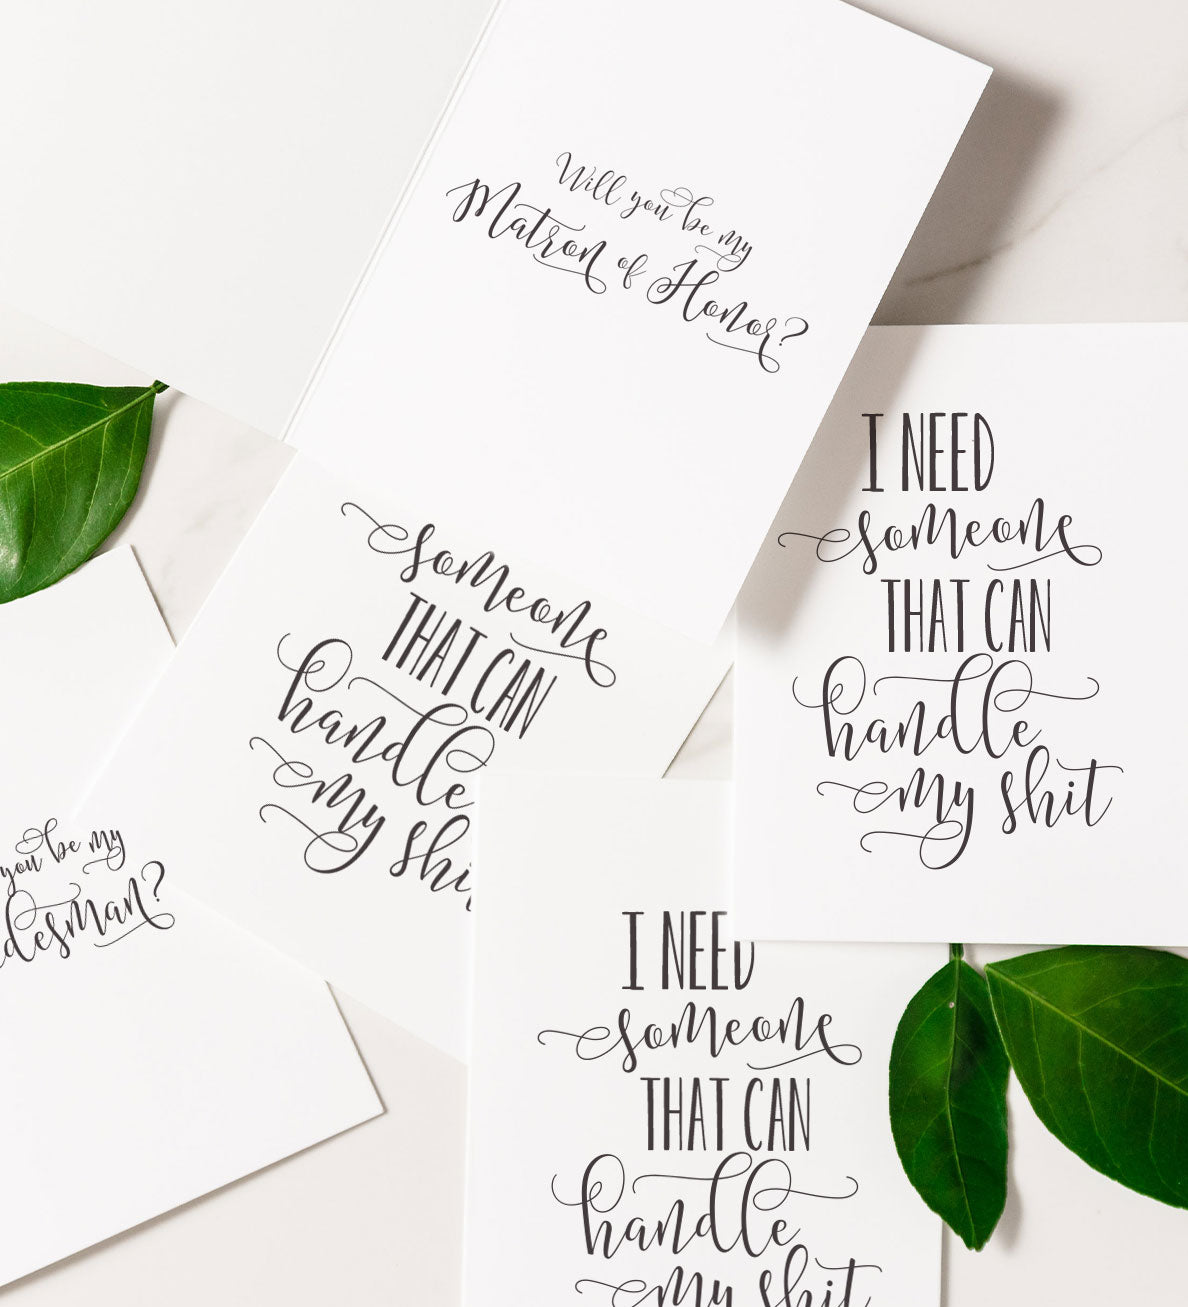 Will you be my
Matron of Honor?
I NEED
someone
THAT CAN
handle
my shit
someone
THAT CAN
handle
my shi
you be my
desman?
I NEED
someone
THAT CAN
handle
my shit